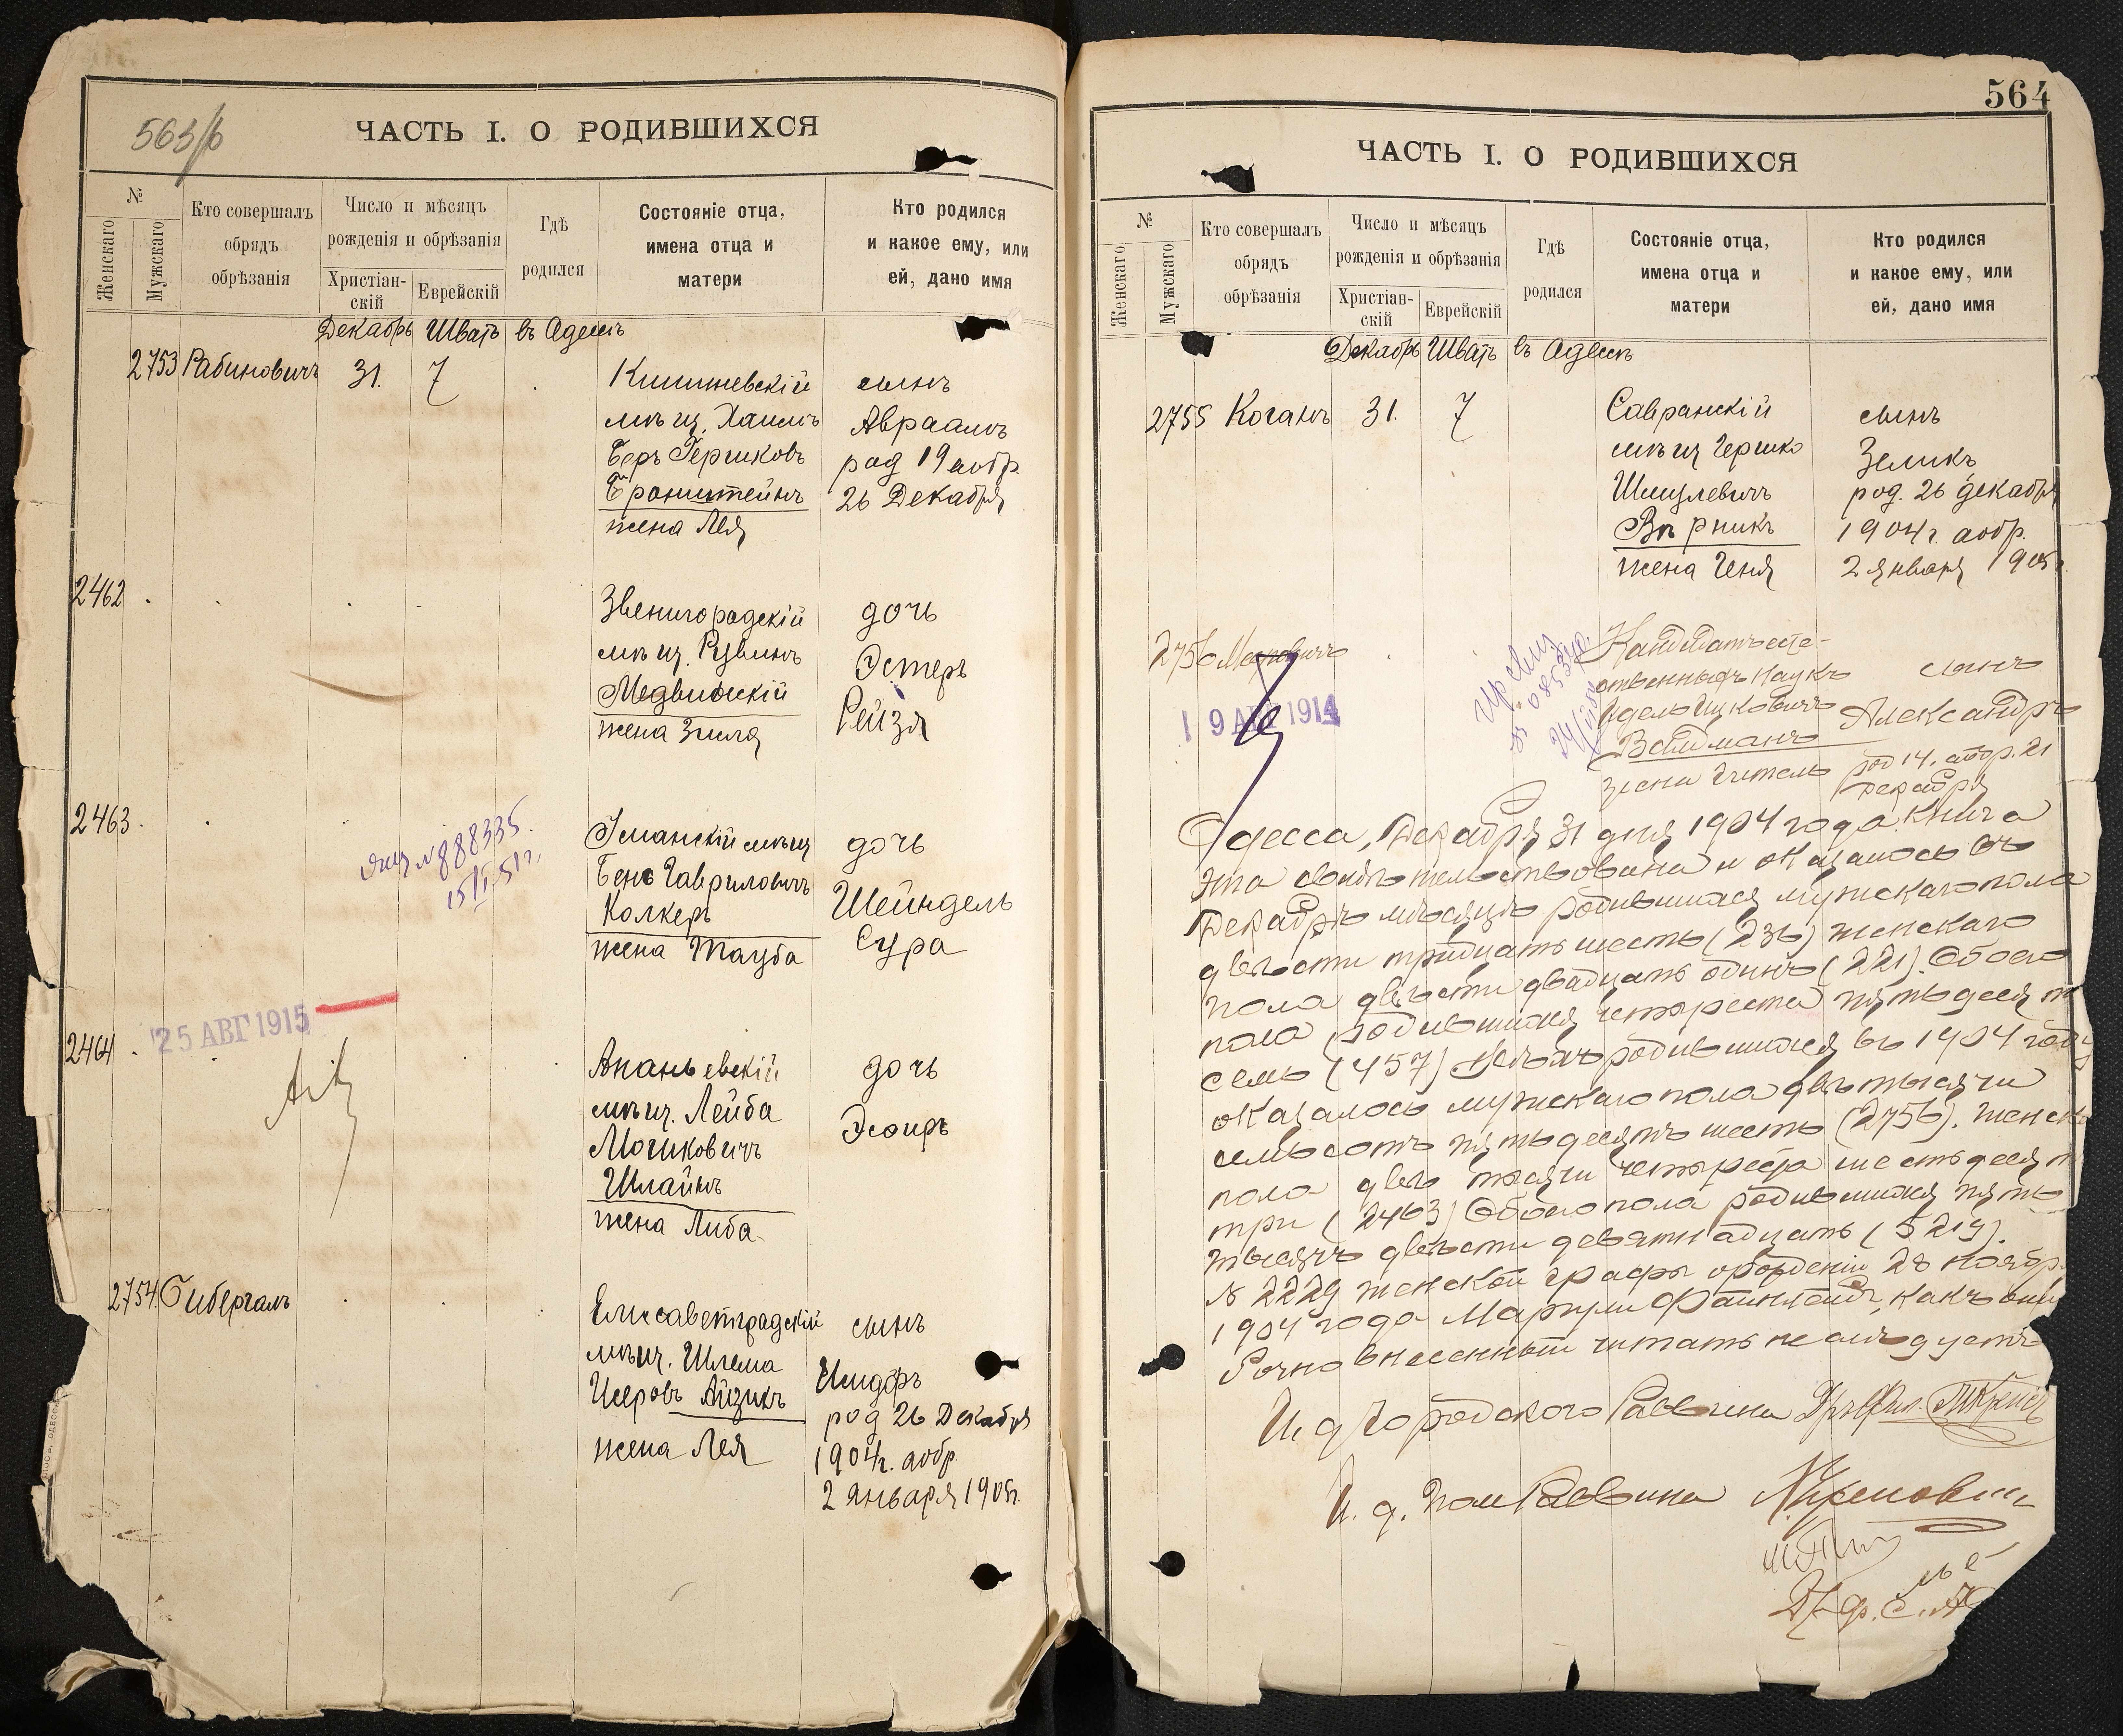 563/б
ЧАСТЬ I. О РОДИВШИХСЯ
№
Женскаго
Мужскаго
Кто совершалъ
обрядъ
обрѣзанія
Число и мѣсяцъ
рожденія и обрѣзанія
Христіан-
скій
Еврейскій
Гдѣ
родился
Состояніе отца,
имена отца и
матери
Кто родился
и какое ему, или
ей, дано имя
Декабрь Шватъ въ Одессѣ
2753 Рабиновичъ 31. 7
Кишиневскій
мѣщ. Хаимъ
Беръ Гершковъ
Бронштейнъ
жена Лея
сынъ
Авраамъ
род 19 а обр.
26 Декабря
2462
Звенигородскій
мѣщ. Рувинъ
Медвинскій
жена Зисля
дочь
Эстеръ
Рейзя
2463.
№ 888335.
15/I-51 г.
Уманскій мѣщ
Бенъ Гавриловичъ
Колкеръ
жена Тауба
дочь
Шейндель
Сура
25 АВГ 1915
2464
Ананьевскій
мѣщ. Лейба
Мошковичъ
Шлайнъ
жена Либа
дочь
Эсфирь
2754. Гибергалъ
Елисаветградскій
мѣщ. Шлема
Исеровъ Айзикъ
жена Лея
сынъ
Исидоръ
род 26 Декабря
1904 г. а обр.
2 января 1905 г.
564
ЧАСТЬ I. О РОДИВШИХСЯ
№
Женскаго
Мужскаго
Кто совершалъ
обрядъ
обрѣзанія
Число и мѣсяцъ
рожденія и обрѣзанія
Христіан-
скій
Еврейскій
Гдѣ
родился
Состояніе отца,
имена отца и
матери
Кто родился
и какое ему, или
ей, дано имя
Декабрь Шватъ въ Одессѣ
2755 Коганъ 31. 7
Савранскій
мѣщ Гершко
Шмулевичъ
Вѣрникъ
жена Геня
сынъ
Зеликъ
род. 26 декабря
1904 г. а обр.
2 января 1905 г.
2756
19 АВГ 1914
Кандидатъ есте-
ственныхъ наукъ
Идель Ицковичъ
Вейдманъ
жена Гитель
сынъ
Александръ
род 14. а обр. 21
Декабря
Одесса, Декабря 31 дня 1904 года. Книга
эта свидѣтельствована и оказалось въ
Декабрѣ мѣсяцѣ родившихся мужскаго пола
двѣсти тридцать шесть (236) женскаго
пола двѣсти двадцать одинъ (221). Обоего
пола родившихся четыреста пятьдесятъ
семь (457) Всѣхъ родившихся въ 1904 году
оказалось мужскаго пола двѣ тысячи
семьсотъ пятьдесятъ шесть (2756). женск
пола двѣ тысячи четыреста шестьдесят
три (2463) Обоего пола родившихся пять
тысячъ двѣсти девятнадцать (5219).
№ 2229 женской графы о рожденіи 28 ноябр.
1904 года Маргули Файнтейхъ, какъ оши
бочно внесенный читать не слѣдуетъ
И. д Городского Раввина
И. д. Пом Раввина